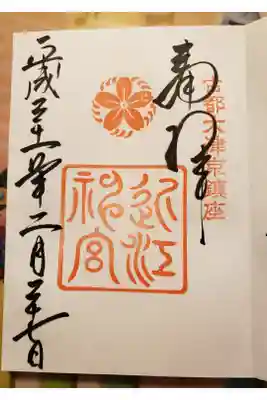 奉拝
古都大津京鎮座
近江
神宮
平成三十一年二月二十七日